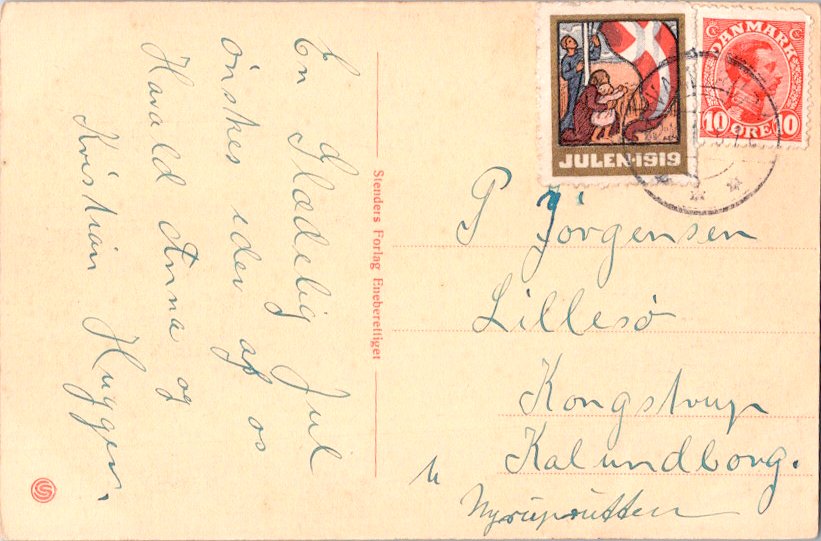 En Glædelig Jul
ønskes eder af os
Harald Anna og
Kristian Huggen.
Stenders Forlag Eneberettiget
JULEN·1919
DANMARK
10 ØRE 10
P Jörgensen
Lillesø
Kongstrup
Kalundborg.
Nyruprutten